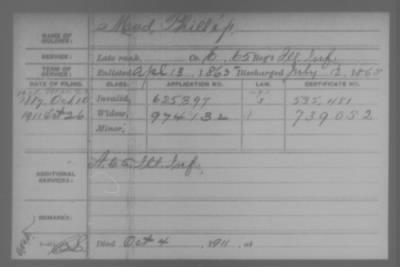 Mead, Phillip.
NAME OF SOLDIER:
SERVICE: Late rank, Co. E, 65 Reg't Ill Inf.
TERM OF SERVICE: Enlisted Apl 13, 1865 Discharged July 13, 1865
DATE OF FILING. CLASS. APPLICATION NO. LAW. CERTIFICATE NO.
1887, Oct 10 Invalid, 625397 535,481
1911 Oct 26 Widow, 974132 1 739052
Minor,
ADDITIONAL SERVICES: A. 65 Ill. Inf.
REMARKS:
Died Oct 4, 1911, at